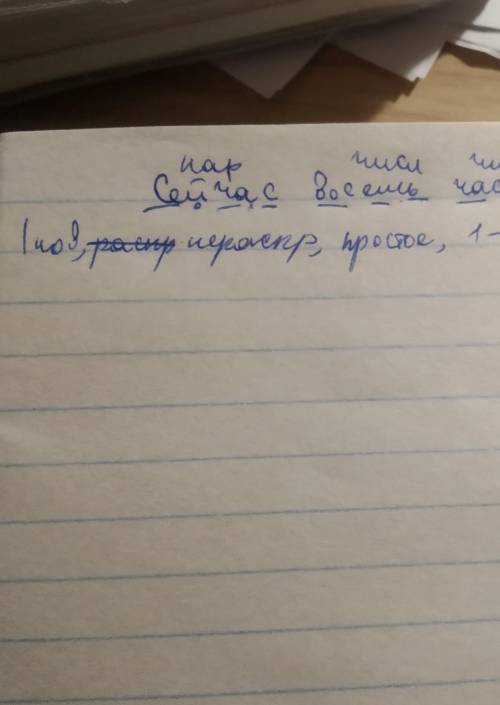 нар числ
Сейчас восемь час
(пов, распр нераспр, простое, 1-